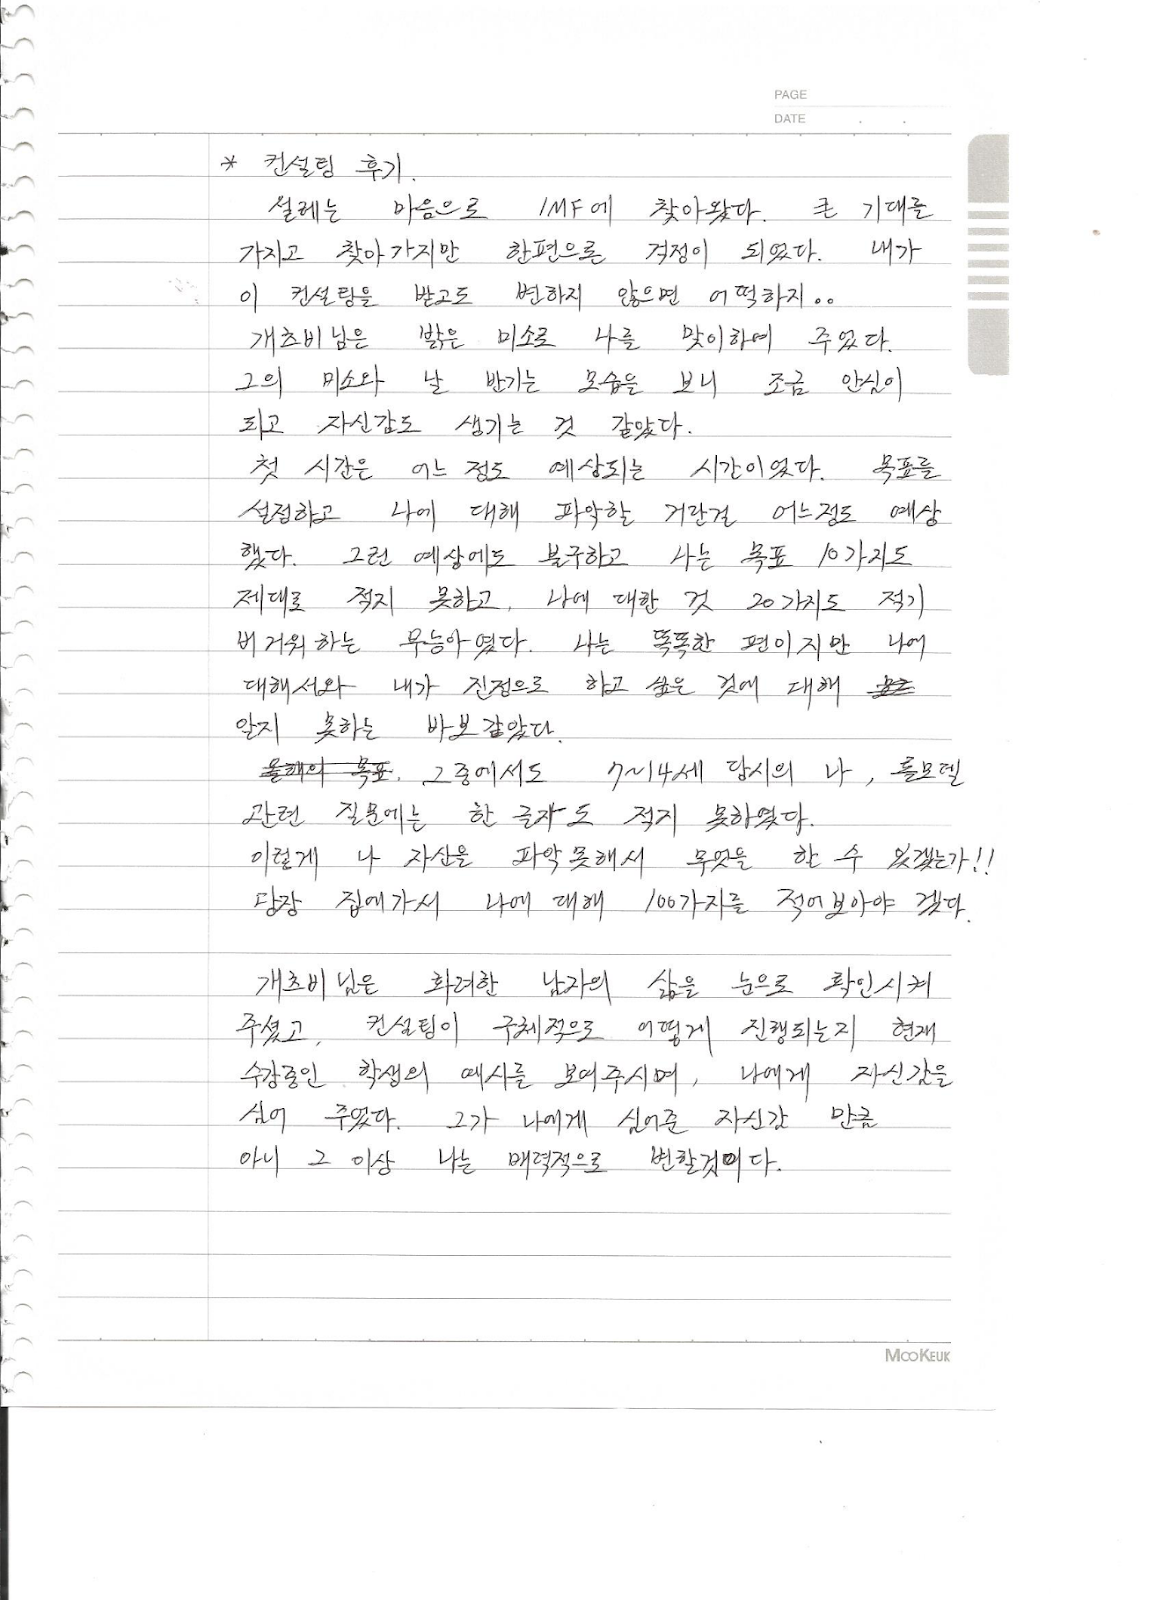 PAGE
DATE . .
* 컨설팅 후기.
설레는 마음으로 IMF에 찾아왔다. 큰 기대를
가지고 찾아가지만 한편으론 걱정이 되었다. 내가
이 컨설팅을 받고도 변하지 않으면 어떡하지..
개츠비님은 밝은 미소로 나를 맞이하여 주었다.
그의 미소와 날 반기는 모습을 보니 조금 안심이
되고 자신감도 생기는 것 같았다.
첫 시간은 어느 정도 예상되는 시간이었다. 목표를
설정하고 나에 대해 파악할 거란걸 어느정도 예상
했다. 그런 예상에도 불구하고 나는 목표 10가지도
제대로 적지 못하고, 나에 대한 것 20가지도 적기
버거워하는 무능아였다. 나는 똑똑한 편이지만 나에
대해서와 내가 진정으로 하고 싶은 것에 대해
알지 못하는 바보같았다.
올해의 목표. 그중에서도 7~14세 당시의 나, 롤모델
관련 질문에는 한 글자도 적지 못하였다.
이렇게 나 자신을 파악못해서 무엇을 할 수 있겠는가!!
당장 집에가서 나에 대해 100가지를 적어보아야 겠다.
개츠비님은 화려한 남자의 삶을 눈으로 확인시켜
주셨고, 컨설팅이 구체적으로 어떻게 진행되는지 현재
수강중인 학생의 예시를 보여주시며, 나에게 자신감을
심어 주었다. 그가 나에게 심어준 자신감 만큼
아니 그 이상 나는 매력적으로 변할것이다.
MOOKEUK